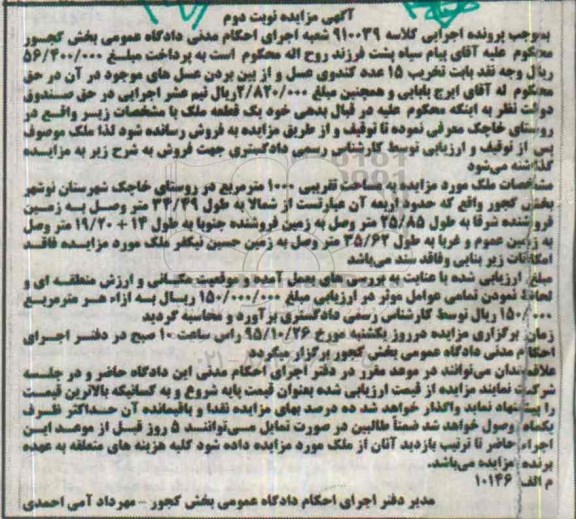 آگهی مزایده نوبت دوم
بموجب پرونده اجرایی کلاسه ۹۱۰۰۳۹ شعبه اجرای احکام مدنی دادگاه عمومی بخش کجور
محکوم علیه آقای پیام سیاه پشت فرزند روح اله محکوم است به پرداخت مبلغ ۵۶/۴۰۰/۰۰۰
ریال وجه نقد بابت تخریب ۱۵ عدد کندوی عسل و از بین بردن عسل های موجود در آن در حق
محکوم له آقای ایرج بابایی و همچنین مبلغ ۲/۸۲۰/۰۰۰ریال نیم عشر اجرایی در حق صندوق
دولت نظر به اینکه محکوم علیه در قبال بدهی خود یک قطعه ملک با مشخصات زیر واقع در
روستای خاچک معرفی نموده تا توقیف و از طریق مزایده به فروش رسانده شود لذا ملک موصوف
پس از توقیف و ارزیابی توسط کارشناس رسمی دادگستری جهت فروش به شرح زیر به مزایده
گذاشته می‌شود
مشخصات ملک مورد مزایده به مساحت تقریبی ۱۰۰۰ مترمربع در روستای خاچک شهرستان نوشهر
بخش کجور واقع که حدود اربعه آن عبارتست از شمالا به طول ۳۴/۴۹ متر وصل به زمین
فروشنده شرقا به طول ۲۵/۸۵ متر وصل به زمین فروشنده جنوبا به طول ۱۴+۱۹/۲۰ متر وصل
به زمین عموم و غربا به طول ۳۵/۶۲ متر وصل به زمین حسین نیکفر ملک مورد مزایده فاقد
امکانات زیر بنایی وفاقد سند می‌باشد
مبلغ ارزیابی شده با عنایت به بررسی های بعمل آمده و موقعیت مکانی و ارزش منطقه ای و
لحاظ نمودن تمامی عوامل موثر در ارزیابی مبلغ ۱۵۰/۰۰۰/۰۰۰ ریال به ازاء هر مترمربع
۱۵۰/۰۰۰ ریال توسط کارشناس رسمی دادگستری برآورد و محاسبه گردید
زمان برگزاری مزایده درروز یکشنبه مورخ ۹۵/۱۰/۲۶ راس ساعت ۱۰ صبح در دفتر اجرای
احکام مدنی دادگاه عمومی بخش کجور برگزار میگردد
علاقمندان می‌توانند در موعد مقرر در دفتر اجرای احکام مدنی این دادگاه حاضر و در جلسه
شرکت نمایند مزایده از قیمت ارزیابی شده بعنوان قیمت پایه شروع و به کسانیکه بالاترین قیمت
را پیشنهاد نماید واگذار خواهد شد ده درصد بهای مزایده نقدا و باقیمانده آن حداکثر ظرف
یکماه وصول خواهد شد ضمناً طالبین در صورت تمایل می‌توانند ۵ روز قبل از موعد این
اجراء حاضر تا ترتیب بازدید آنان از ملک مورد مزایده داده شود کلیه هزینه های متعلقه به عهده
برنده مزایده می‌باشد.
م الف ۱۰۱۴۶
مدیر دفتر اجرای احکام دادگاه عمومی بخش کجور - مهرداد آمی احمدی